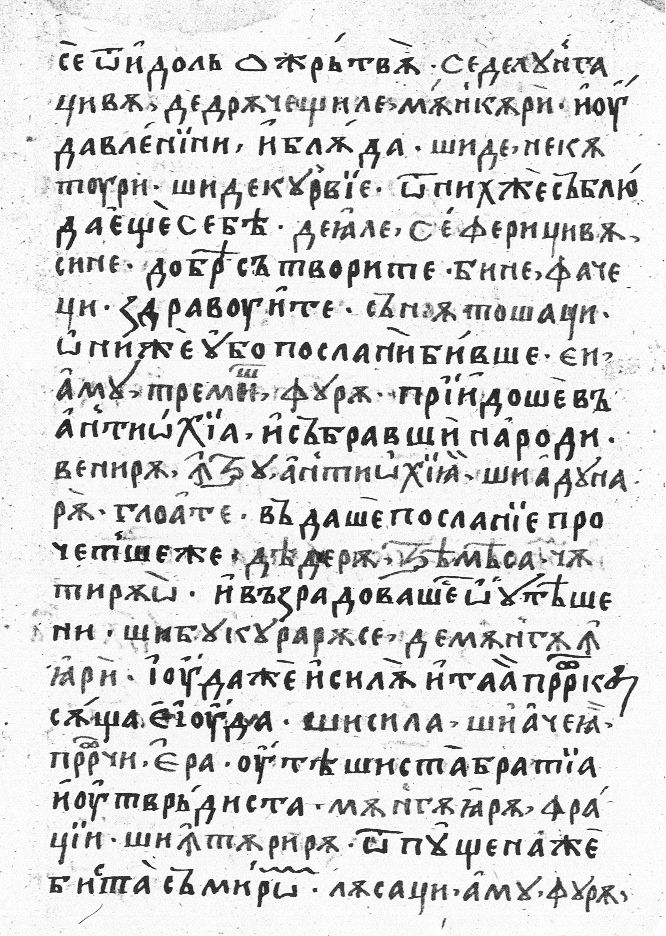 се ѿи́долъ ѻжрь́твѧ̀ · сѐделꙋн҇га
цивѫ, дедрѫчещиле, мѫ́н҇кѫрѝ · ѝоу҆
давле́нїни, ѝблѧ́да · шиде, некѫ
тоури · шидекꙋрвїе · ѿнихжѐсъблю́
даѥ҆щѐсебѣ · деꙗ҆ле, сѐ ферицивѫ,
сине · добрѣ сътворите · бине, фаче
ци · здравоуи҆те · сънѫтошаци ·
ѡ҆нижѐ ꙋ҆бо послани̇бѝвше · єи,
а҆мꙋ, тремⷲ҇и, фꙋрѫ · прїи҆дошѐвъ
а҆н҇тиѡ҆хїа, ѝсъбравшѝ наро̀ди ·
венирѫ, ꙟ҆зꙋ, а҆н҇тиѡ҆хїꙗ҆, шиа҆дꙋна
рѫ̀ · глоа҆те · въдашѐ посланїе про
чет҇шеже, дѣдерѫ, зѣмѣса, чѫ
тирѫѡ҆ · ѝвъзрадовашѐѡ҆ꙋтѣше
ни · шибꙋкꙋрарѫсе, демѫн҇гѫꙟ҆
ꙗ҆рѝ · і҆оу҆дажѐ ѝсилѧ̀ ѝтаа҆прⷪ҇рко
сѫ́ща є҆і҆оу҆да · шисила, шиа҆чеꙗ҆,
прⷪ҇рчи, є҆ра · оу҆тѣшиста̀братїа
ѝоу҆твръ́диста · мѫн҇гѫꙗ҆рѫ, фра́
цїи · шиꙟ҆тѫрирѫ · ѿпꙋ́щенажѐ
биⷭ҇та̀ съмирѡ̀ · лѫсаци, а҆мꙋ, фꙋрѫ,